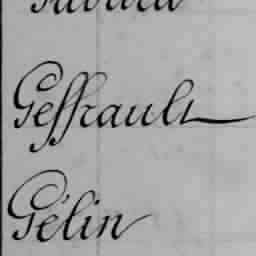 Geffrault
Gélin